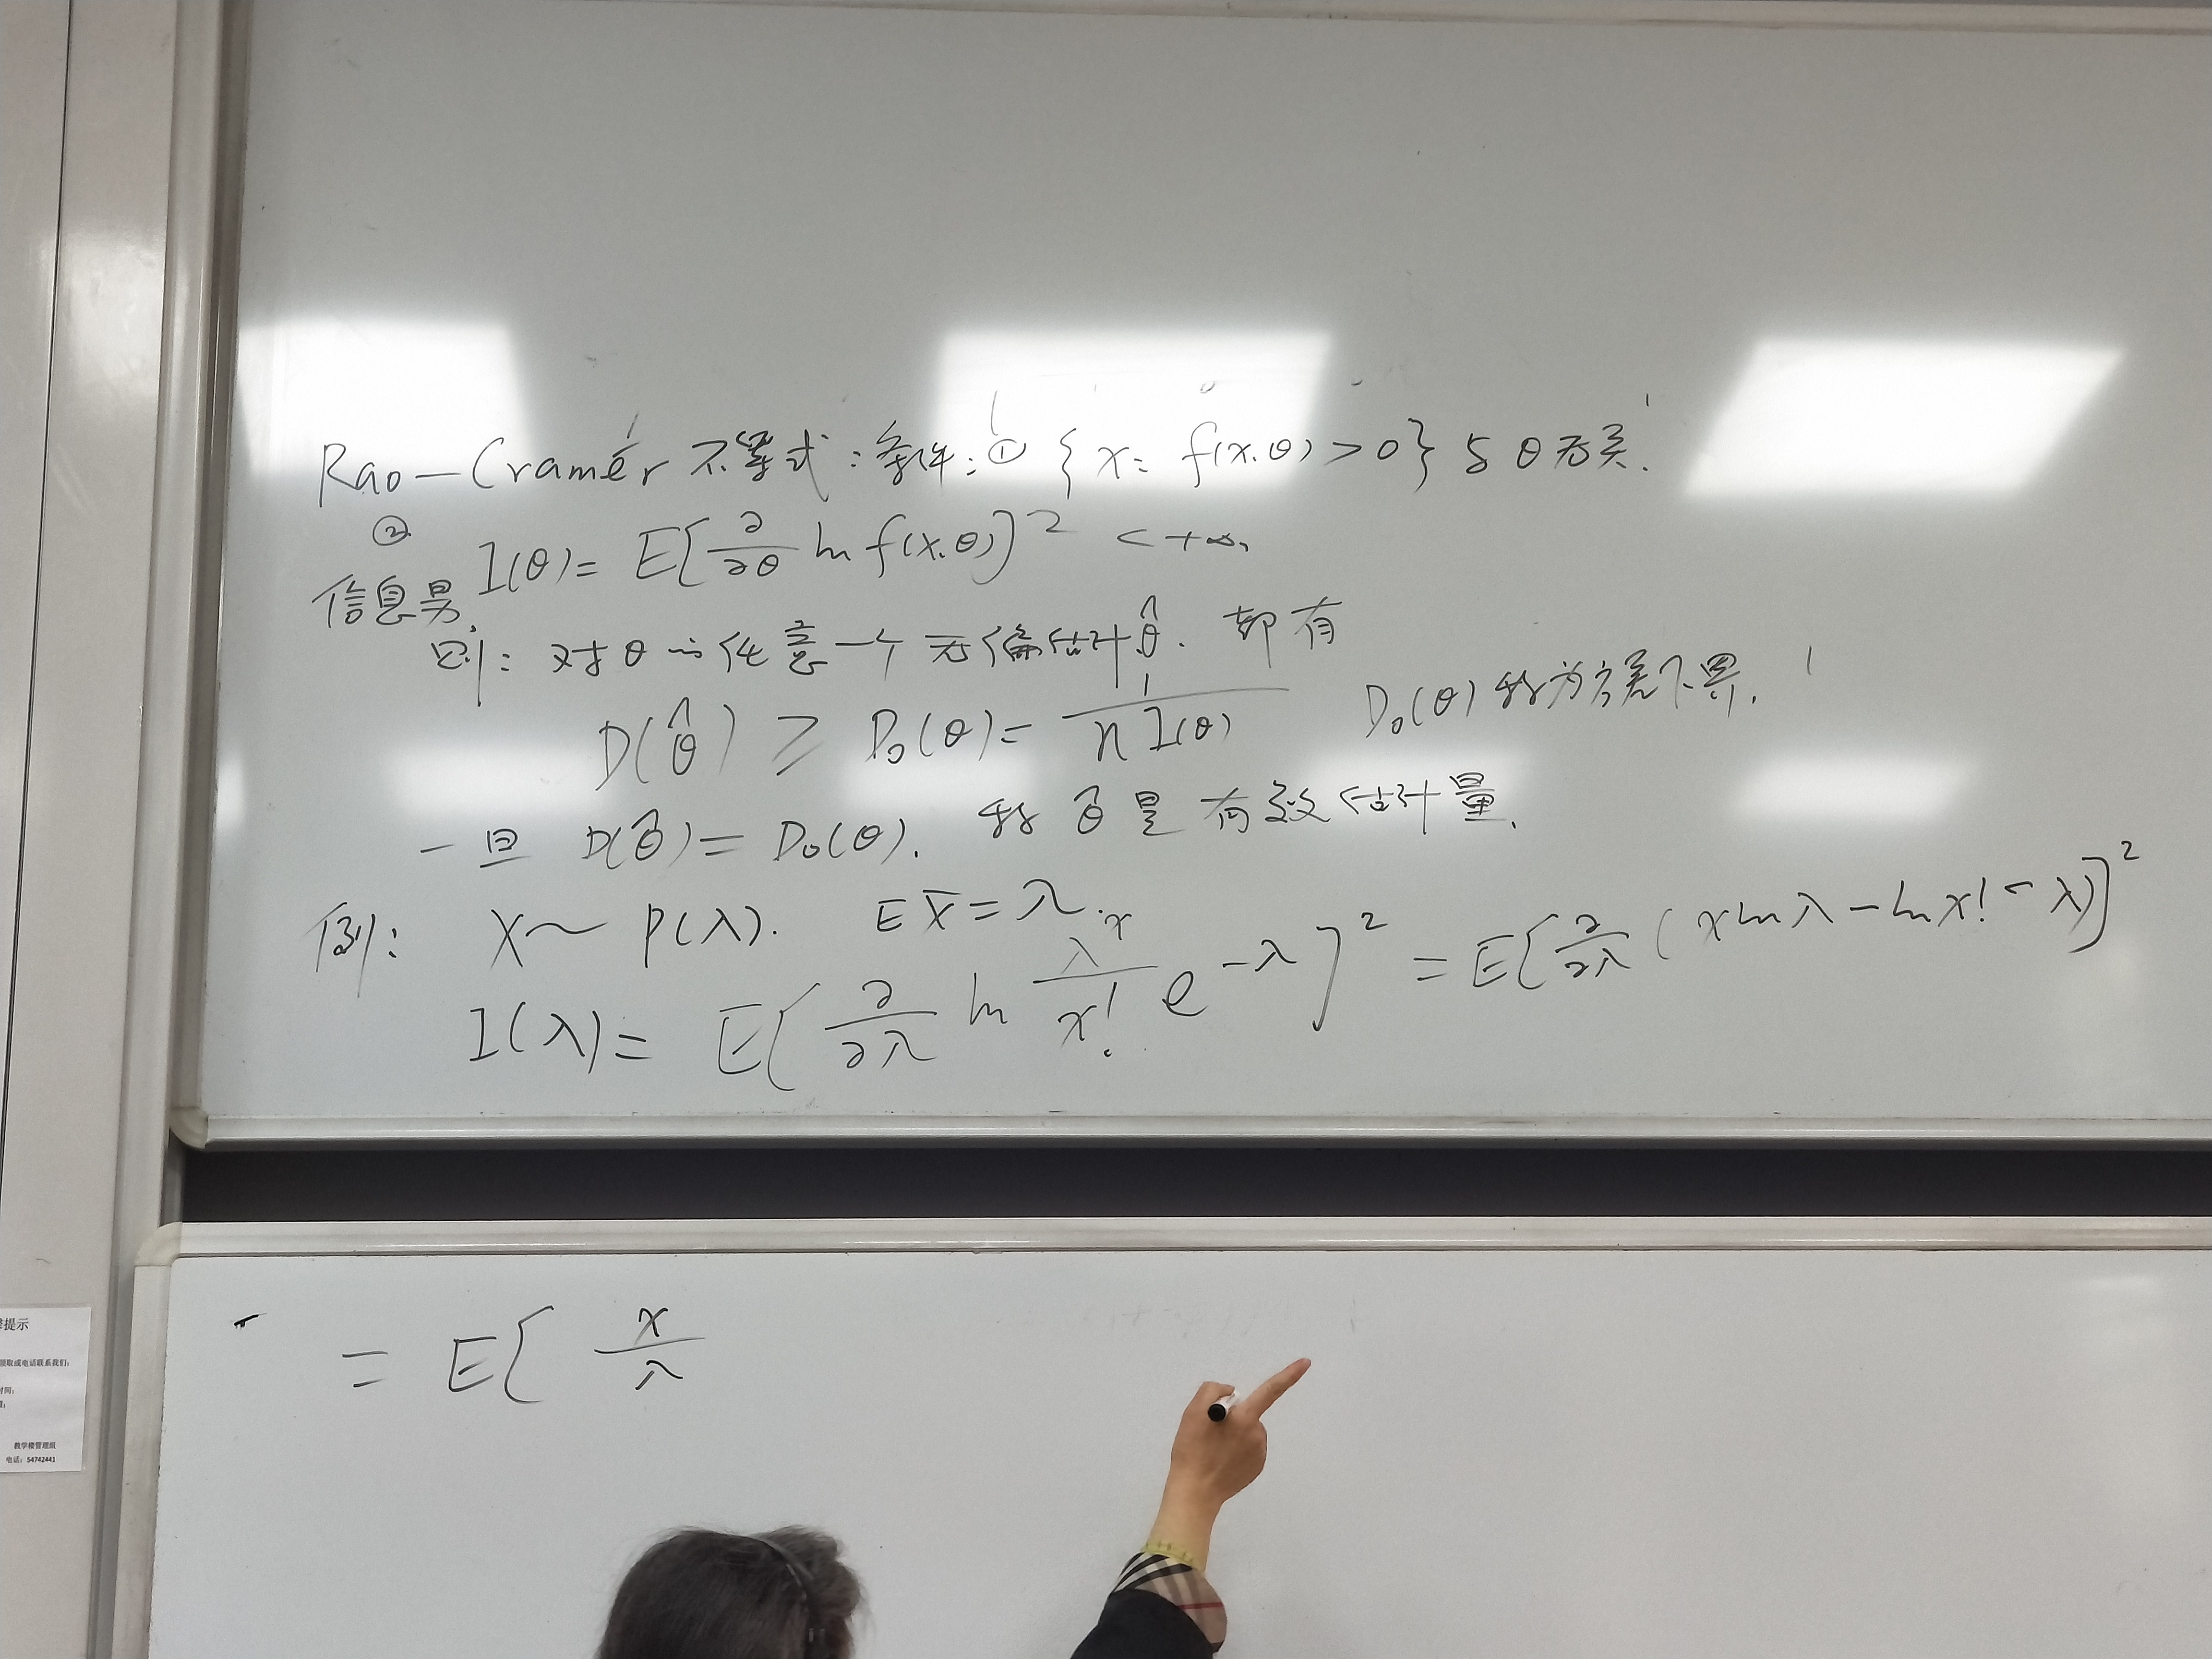 Rao-Cramér 不等式: 条件: ① {x: f(x.θ)>0} 与 θ 无关.
② I(θ)= E[∂/∂θ ln f(x.θ)]² <+∞,
信息量
则: 对 θ 的任意一个无偏估计 θ̂. 都有
D(θ̂) ≥ D₀(θ)= 1/(n I(θ)) D₀(θ) 称为方差下界.
一旦 D(θ̂)= D₀(θ). 称 θ̂ 是有效估计量.
例: X~P(λ). E X̄=λ.
I(λ)= E[∂/∂λ ln λˣ/x! e^-λ]² = E[∂/∂λ (x ln λ - ln x! - λ)]²
= E[ x/λ
提示
领取或电话联系我们:
时间:
教学楼管理组
电话: 54742441